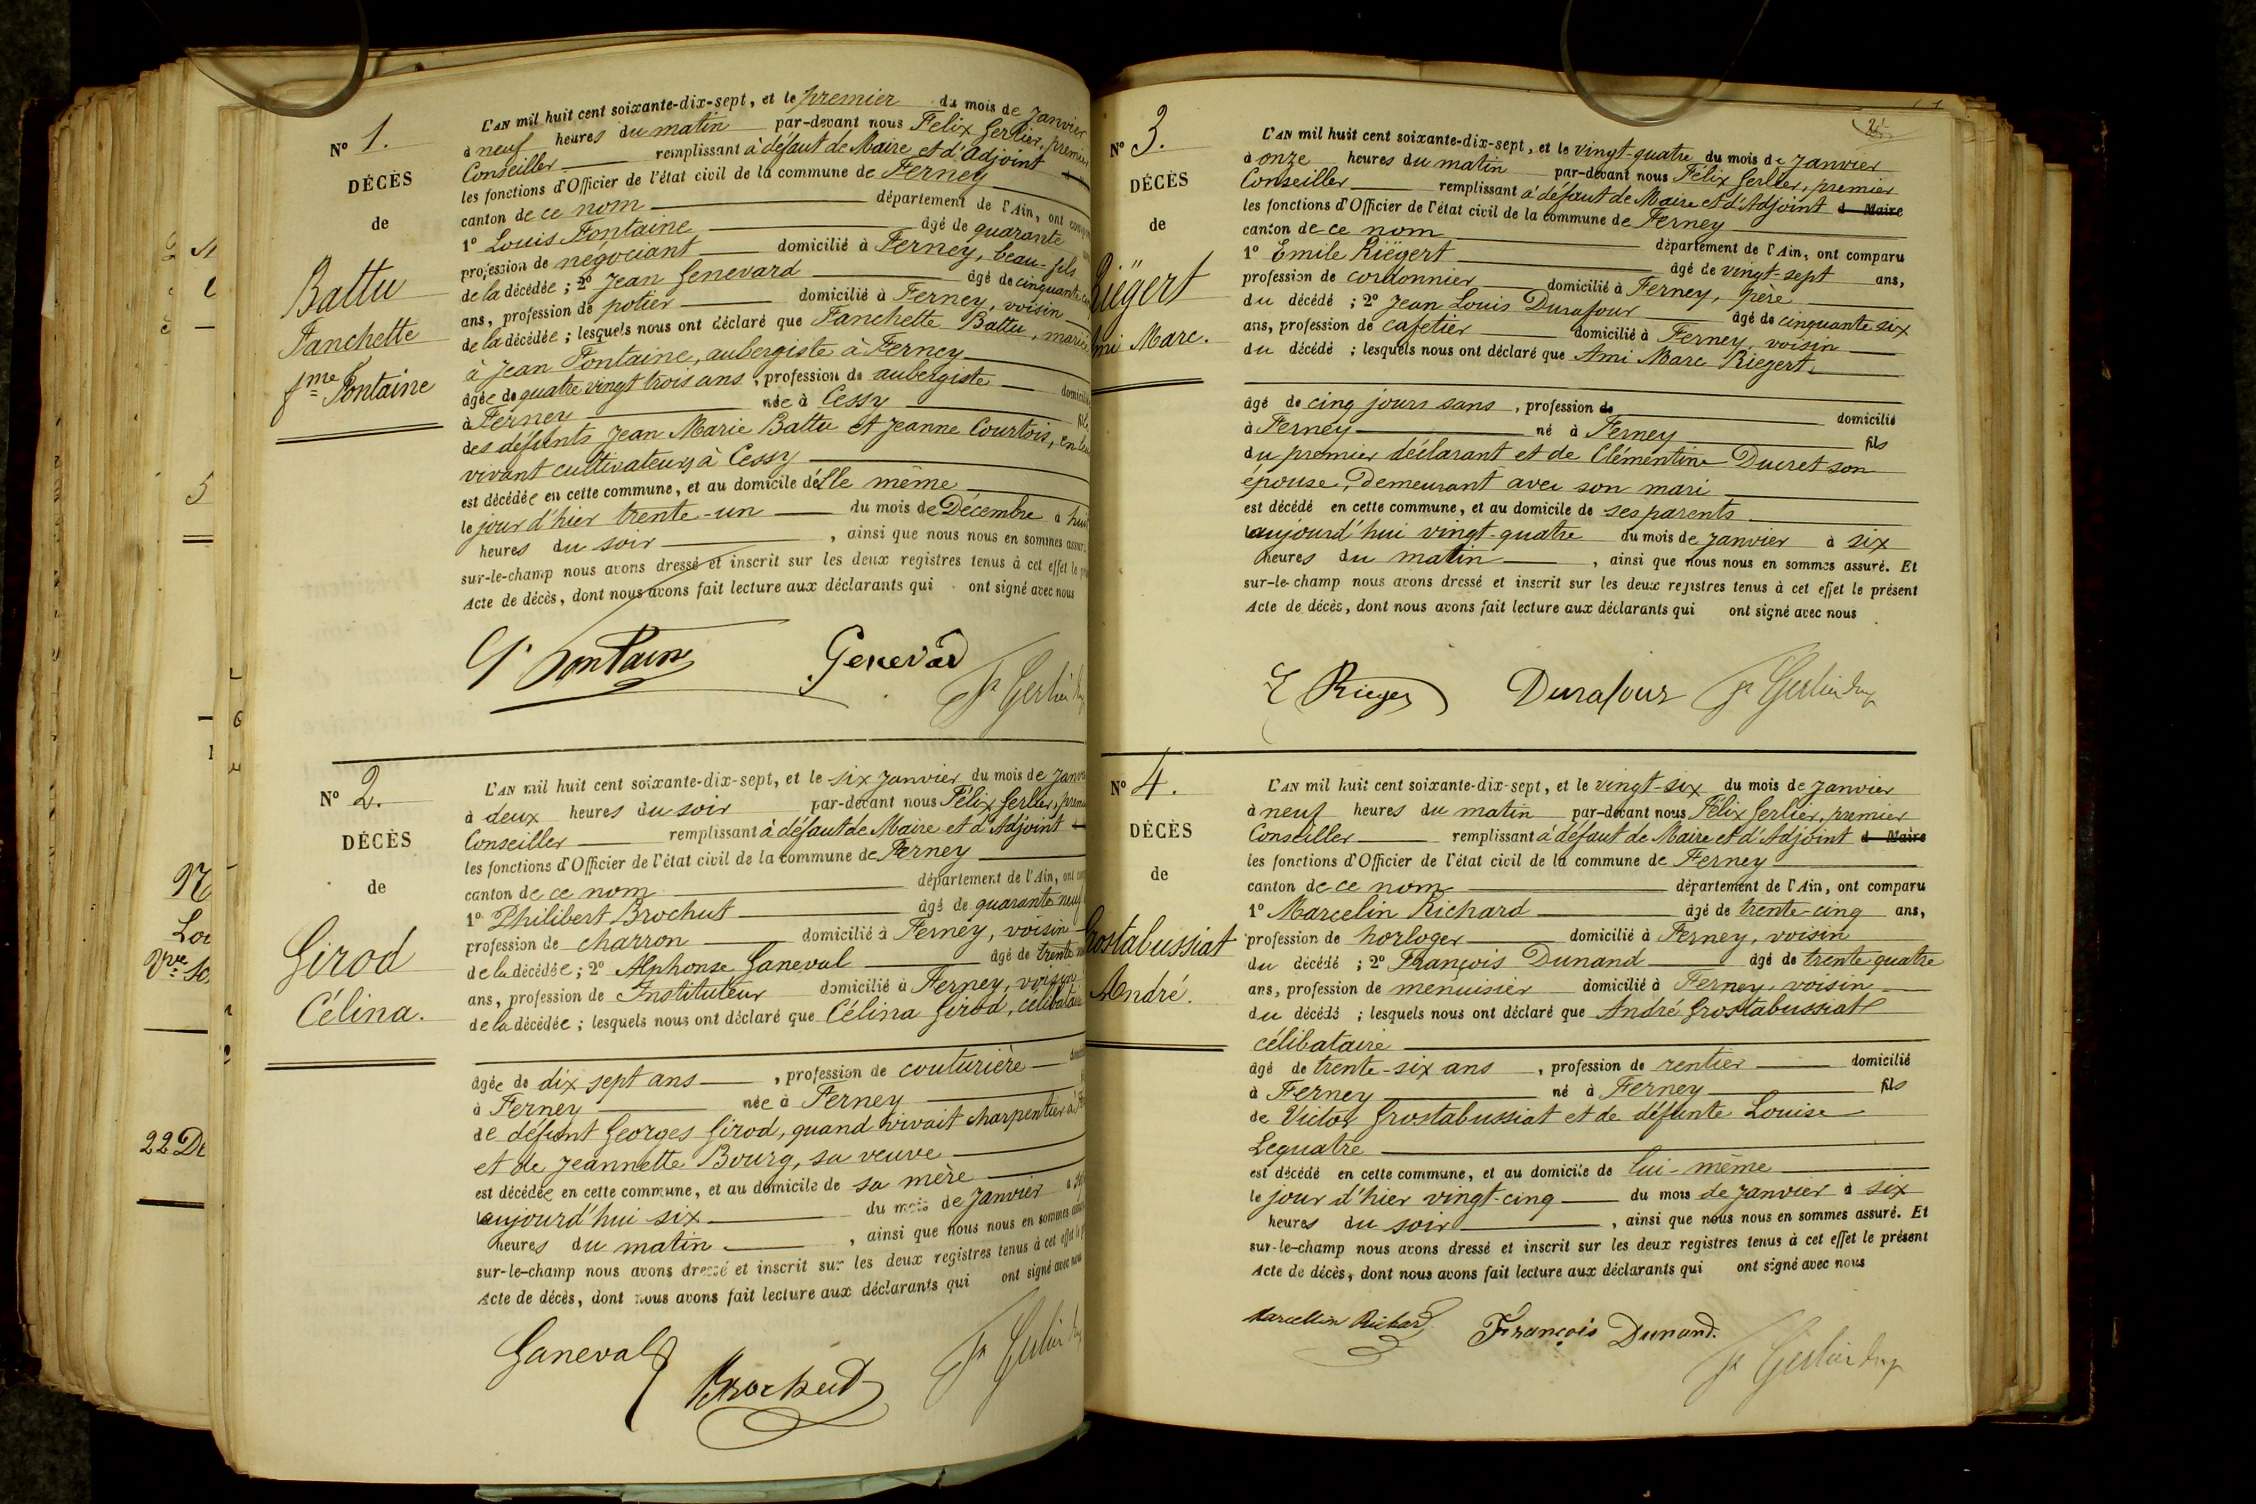 Nº 1.
DÉCÈS
de
Battu
Fanchette
fme Fontaine
L'AN mil huit cent soixante-dix-sept, et le premier du mois de Janvier
à neuf heures du matin par-devant nous Félix Gerlier, premier
Conseiller remplissant à défaut de Maire et d'Adjoint
les fonctions d'Officier de l'état civil de la commune de Ferney
canton de ce nom département de l'Ain, ont
1º Louis Fontaine âgé de quarante
profession de négociant domicilié à Ferney, beau-fils
de la décédée ; 2º Jean Genevard âgé de cinquante
ans, profession de potier domicilié à Ferney, voisin
de la décédée ; lesquels nous ont déclaré que Fanchette Battu, mariée
à Jean Fontaine, aubergiste à Ferney
âgée de quatre vingt trois ans, profession de aubergiste
à Ferney née à Cessy
des défunts Jean Marie Battu et Jeanne Courtois, en leur
vivant cultivateurs à Cessy
est décédée en cette commune, et au domicile d'elle même
le jour d'hier trente-un du mois de Décembre à huit
heures du soir, ainsi que nous nous en sommes
sur-le-champ nous avons dressé et inscrit sur les deux registres tenus à cet effet le
Acte de décès, dont nous avons fait lecture aux déclarants qui ont signé avec nous
Fontaine Genevard
Nº 2.
DÉCÈS
de
Girod
Célina.
L'AN mil huit cent soixante-dix-sept, et le six janvier du mois de
à deux heures du soir par-devant nous Félix Gerlier,
Conseiller remplissant à défaut de Maire et d'Adjoint
les fonctions d'Officier de l'état civil de la commune de Ferney
canton de ce nom département de l'Ain, ont
1º Philibert Brochut âgé de quarante neuf
profession de charron domicilié à Ferney, voisin
de la décédée ; 2º Alphonse Ganeval âgé de trente
ans, profession de Instituteur domicilié à Ferney, voisin
de la décédée ; lesquels nous ont déclaré que Célina Girod, célibataire
âgée de dix sept ans, profession de couturière
à Ferney née à Ferney
de défunt Georges Girod, quand vivait charpentier à
et de Jeannette Bourg, sa veuve
est décédée en cette commune, et au domicile de sa mère
aujourd'hui six du mois de janvier à
heures du matin, ainsi que nous nous en sommes
sur-le-champ nous avons dressé et inscrit sur les deux registres tenus à cet effet le
Acte de décès, dont nous avons fait lecture aux déclarants qui ont signé avec nous
Ganeval
Brochut
Nº 3.
DÉCÈS
de
Riëgert
Marc.
L'AN mil huit cent soixante-dix-sept, et le vingt-quatre du mois de janvier
à onze heures du matin par-devant nous Félix Gerlier, premier
Conseiller remplissant à défaut de Maire et d'Adjoint d Maire
les fonctions d'Officier de l'état civil de la commune de Ferney
canton de ce nom département de l'Ain, ont comparu
1º Emile Riëgert âgé de vingt-sept ans,
profession de cordonnier domicilié à Ferney, père
du décédé ; 2º Jean Louis Durafour âgé de cinquante six
ans, profession de cafetier domicilié à Ferney, voisin
du décédé ; lesquels nous ont déclaré que Ami Marc Riegert
âgé de cinq jours sans, profession de domicilié
à Ferney né à Ferney fils
du premier déclarant et de Clémentine Ducret son
épouse, demeurant avec son mari
est décédé en cette commune, et au domicile de ses parents
aujourd'hui vingt-quatre du mois de janvier à six
heures du matin, ainsi que nous nous en sommes assuré. Et
sur-le-champ nous avons dressé et inscrit sur les deux registres tenus à cet effet le présent
Acte de décès, dont nous avons fait lecture aux déclarants qui ont signé avec nous
E Rieger Durafour
Nº 4.
DÉCÈS
de
Grostabussiat
André.
L'AN mil huit cent soixante-dix-sept, et le vingt-six du mois de janvier
à neuf heures du matin par-devant nous Félix Gerlier, premier
Conseiller remplissant à défaut de Maire et d'Adjoint d Maire
les fonctions d'Officier de l'état civil de la commune de Ferney
canton de ce nom département de l'Ain, ont comparu
1º Marcelin Richard âgé de trente-cinq ans,
profession de horloger domicilié à Ferney, voisin
du décédé ; 2º François Dunand âgé de trente quatre
ans, profession de menuisier domicilié à Ferney, voisin
du décédé ; lesquels nous ont déclaré que André Grostabussiat
célibataire
âgé de trente-six ans, profession de rentier domicilié
à Ferney né à Ferney fils
de Victor Grostabussiat et de défunte Louise
Lequatre
est décédé en cette commune, et au domicile de lui-même
le jour d'hier vingt-cinq du mois de janvier à six
heures du soir, ainsi que nous nous en sommes assuré. Et
sur-le-champ nous avons dressé et inscrit sur les deux registres tenus à cet effet le présent
Acte de décès, dont nous avons fait lecture aux déclarants qui ont signé avec nous
Marcellin Richard François Dunand.